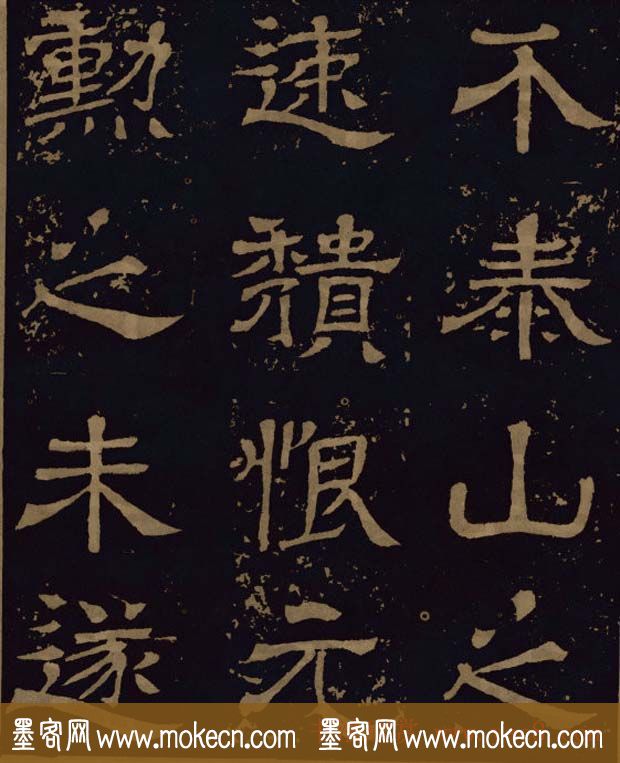 不泰山之
速穨恨元
勳之未遂
墨客网 www.mokecn.com 墨客网 www.mokecn.com